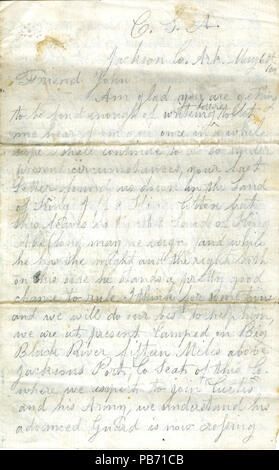 C. S. A.
Jackson Co. Ark. May 6th
Friend John
Am glad you are getting
to be fond enough of writing letters to let
me hear from you once in a while
hope I shall continue to do so under
present circumstances, your last
letter found us down in the Land
of King J. D's
this leaves us in the Land of King
Abe, long may he reign, and while
he has the might and the right both
on his side he stands a pretty good
chance to rule I think for some time
and we will do our best to help him,
we are at present Camped on Big
Black River fifteen Miles above
Jacksons Port, Co Seat of this Co.
where we expect to join Curtis
and his Army, we understand his
advanced Guard is now crossing
alamy
alamy
Image ID: PB71CB
www.alamy.com